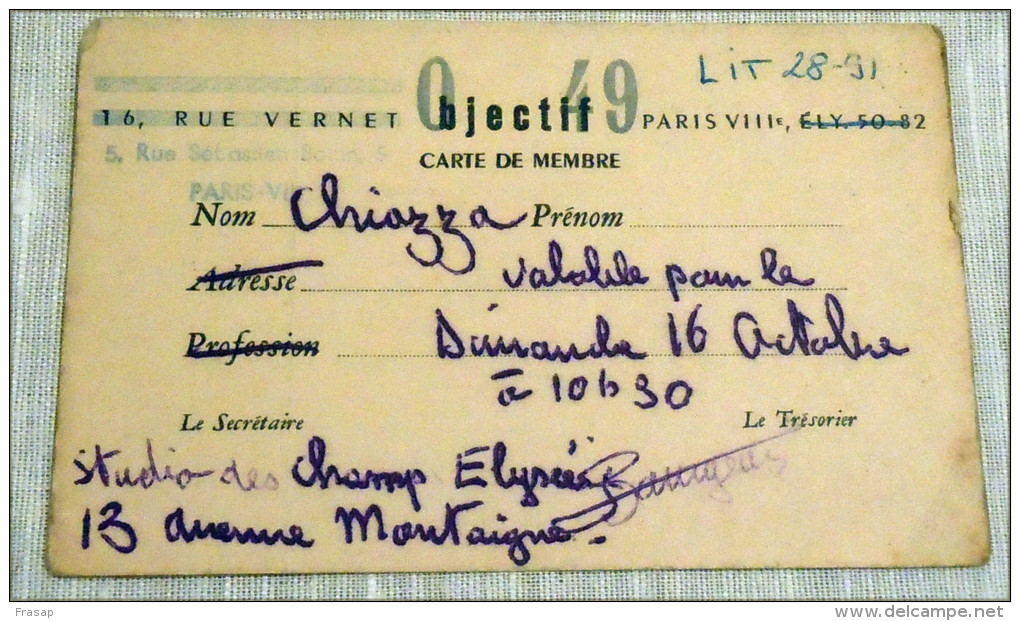 LIT 28-91
Objectif 49
16, RUE VERNET PARIS VIIIe, ÉLY. 50-82
5, Rue Sébastien 5
PARIS-VII
CARTE DE MEMBRE
Nom Chiazza Prénom
Adresse valable pour le
Profession Dimanche 16 Octobre
à 10h30
Le Secrétaire Le Trésorier
Studio des Champ Elysées
13 avenue Montaigne.
Frasap
www.delcampe.net